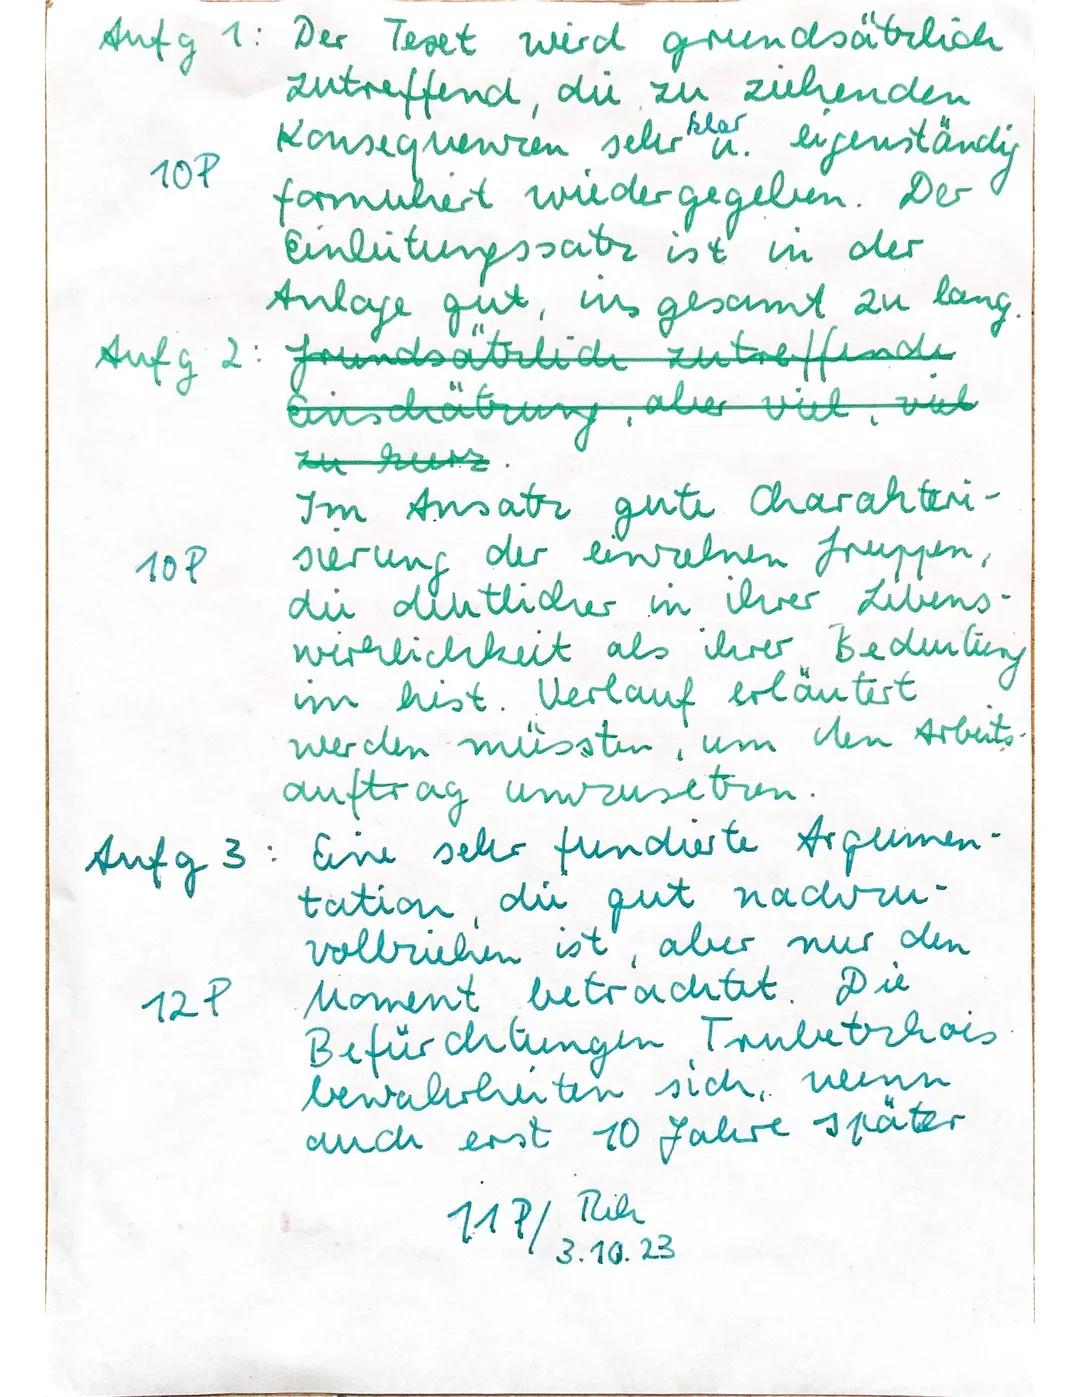 Aufg 1: Der Text wird grundsätzlich
zutreffend, die zu ziehenden
klar
10P Konsequenzen sehr u. eigenständig
formuliert wiedergegeben. Der
Einleitungssatz ist in der
Anlage gut, insgesamt zu lang.
Aufg 2: Grundsätzlich zutreffende
Einschätzung, aber viel, viel
zu kurz.
Im Ansatz gute Charakteri-
10P sierung der einzelnen Gruppen,
die deutlicher in ihrer Lebens-
wirklichkeit als ihrer Bedeutung
im hist. Verlauf erläutert
werden müssten, um den Arbeits-
auftrag umzusetzen.
Aufg 3: Eine sehr fundierte Argumen-
tation, die gut nachzu-
vollziehen ist, aber nur den
12P Moment betrachtet. Die
Befürchtungen Trubetzkois
bewahrheiten sich, wenn
auch erst 10 Jahre später
11P/
3.10.23